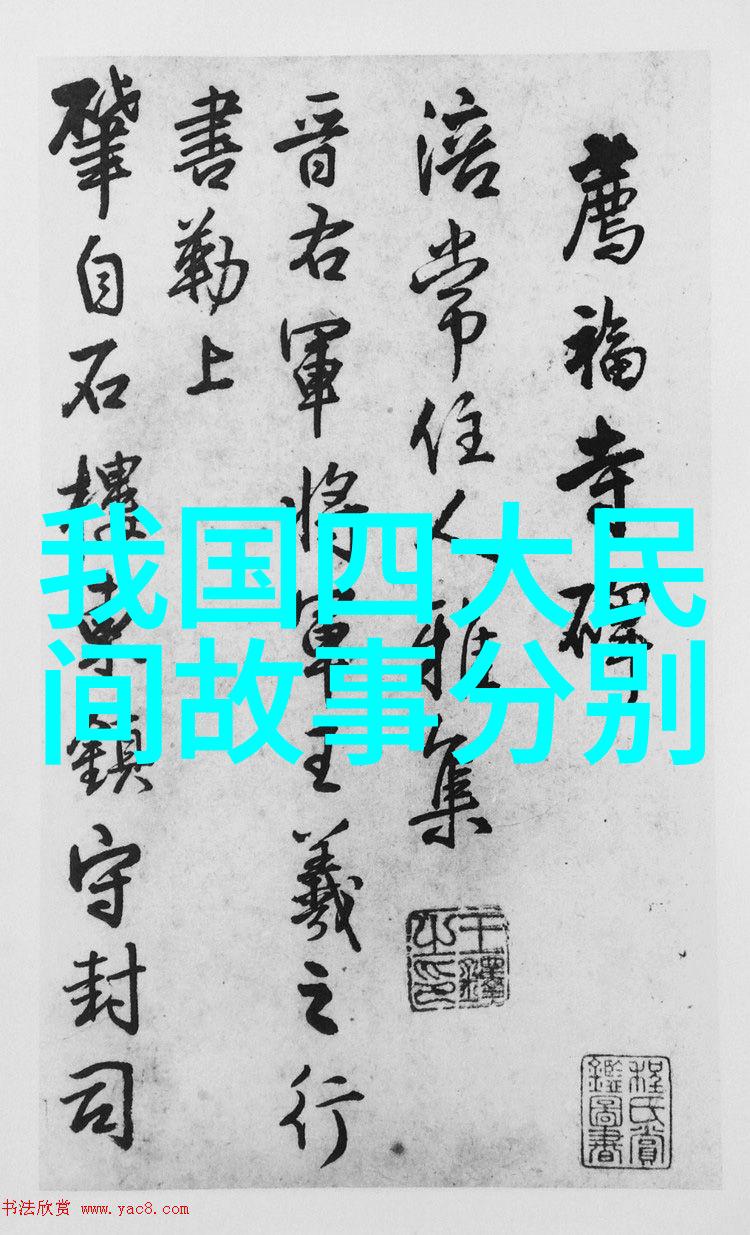 薦福寺碑
涪常住人雅集
晉右軍將軍王羲之行
書勒上
肇自石樓東鎮守封司
王鐸之印
程氏賞鑑圖書
我国四大民
间故事分别
书法欣赏 www.yac8.com